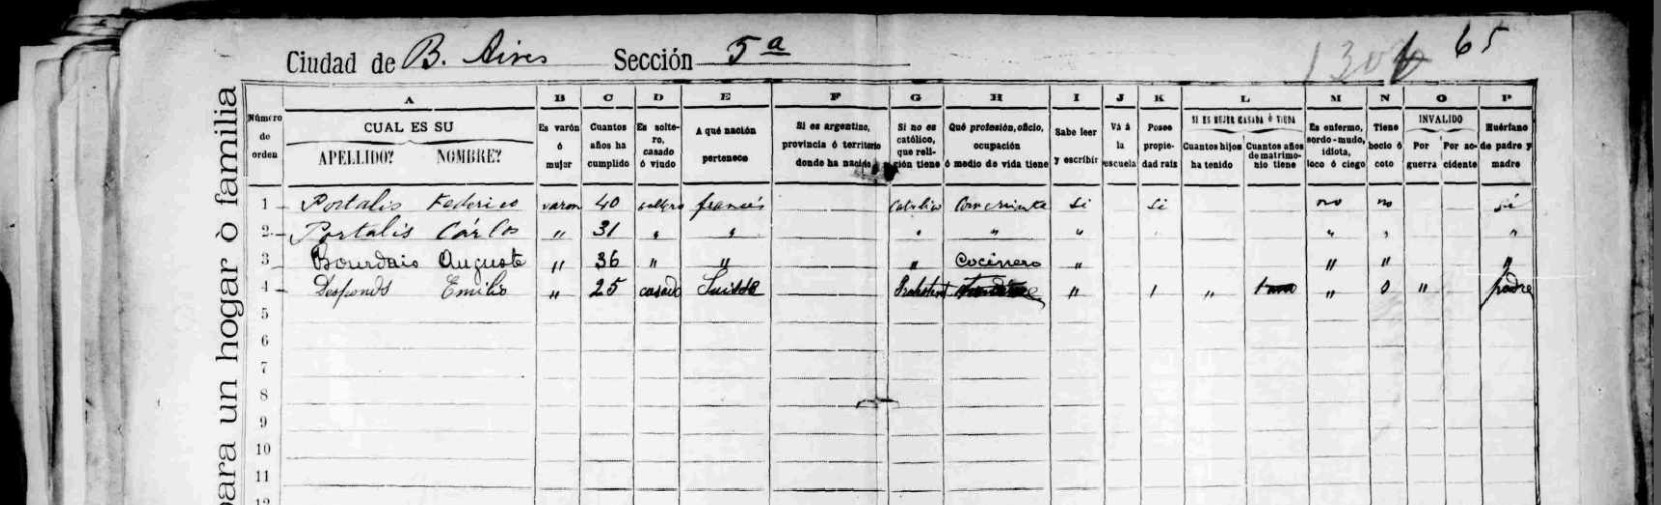 Ciudad de B. Aires Sección 5a 65
para un hogar ò familia
A B C D E F G H I J K L M N O P
Número de orden
CUAL ES SU
APELLIDO? NOMBRE?
Es varón ó mujer
Cuantos años ha cumplido
Es solte- ro, casado ó viudo
A qué nación pertenece
Si es argentino, provincia ó territorio donde ha nacido
Si no es católico, que reli- gión tiene
Qué profesión, oficio, ocupación ó medio de vida tiene
Sabe leer y escribir
Vá á la escuela
Posee propie- dad raiz
SI ES MUJER CASADA Ó VIUDA
Cuantos hijos ha tenido
Cuantos años de matrimo- nio tiene
Es enfermo, sordo-mudo, idiota, loco ó ciego
Tiene bocio ó coto
INVALIDO
Por guerra
Por ac- cidente
Huérfano de padre y madre
1 Portalis Federico varon 40 soltero francés Catolico Comerciante Si Si no no si
2 Portalis Cárlos " 31 " " " " " " " "
3 Bourdais Auguste " 36 " " " Cocinero " " " "
4 Desponds Emilio " 25 casado Suisse " " " " padre
5
6
7
8
9
10
11
12